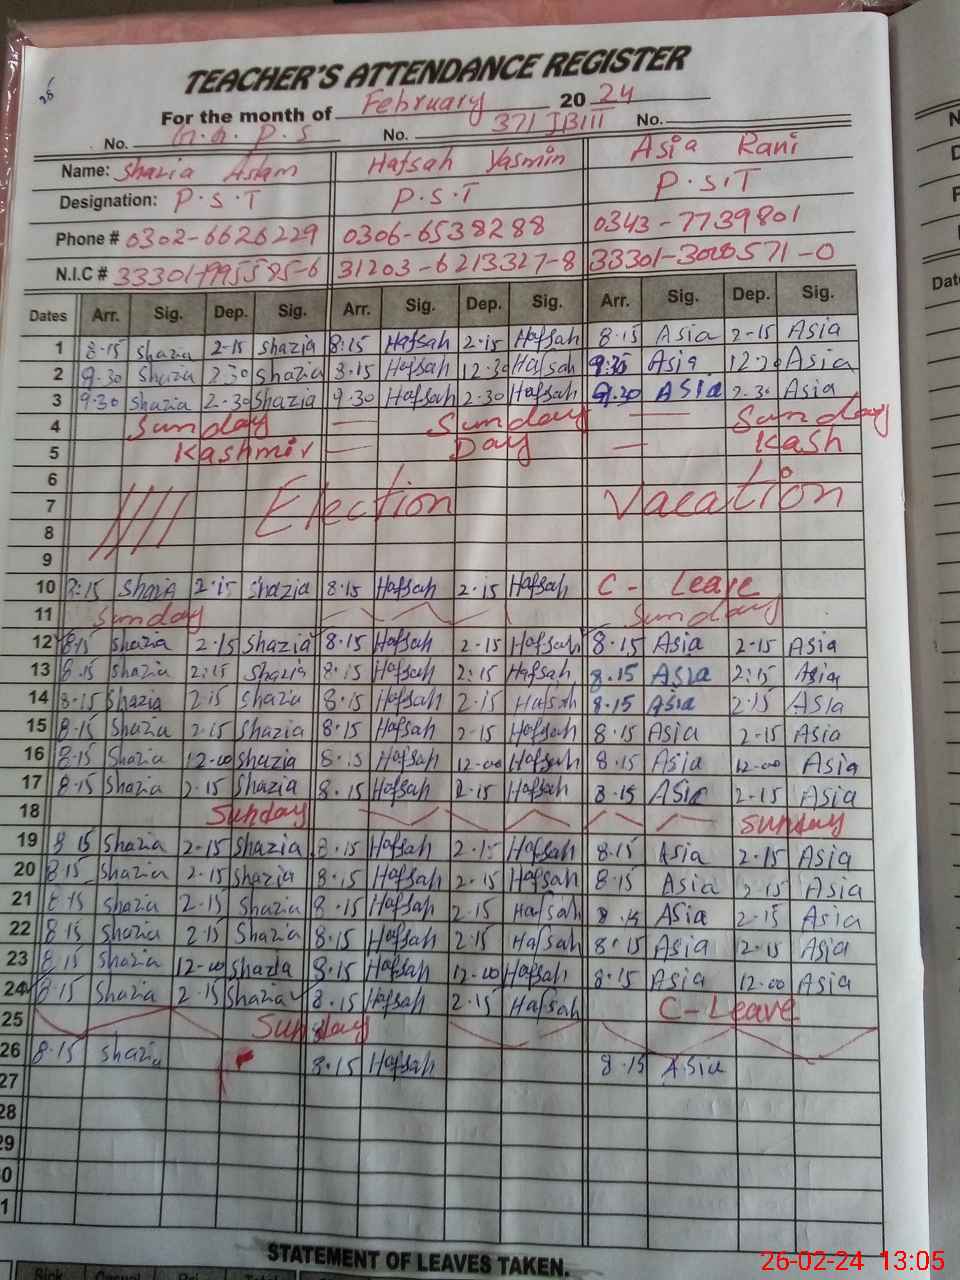 26
TEACHER'S ATTENDANCE REGISTER
For the month of February 2024
No. G.G.P.S No. 371 JB III No.
Name: Shazia Aslam Hafsah Yasmin Asia Rani
Designation: P.S.T P.S.T P.S.T
Phone # 0302-6626229 0306-6538288 0343-7739801
N.I.C # 31203-6213327-8
Dates Arr. Sig. Dep. Sig. Arr. Sig. Dep. Sig. Arr. Sig. Dep. Sig.
1 8.15 Shazia 2-15 Shazia 8:15 Hafsah 2.15 Hafsah 8.15 Asia 2-15 Asia
2 9.30 Shazia 2.30 Shazia 8.15 Hafsah 12.30 Hafsah 9.30 Asia 12.30 Asia
3 9.30 Shazia 2-30 Shazia 9.30 Hafsah 2.30 Hafsah 9.30 Asia 2.30 Asia
4 Sunday — Sunday — Sunday
5 Kashmir — Day — Kash
6
7 Election Vacation
8
9
10 8:15 Shazia 2.15 Shazia 8.15 Hafsah 2.15 Hafsah C- Leave
11 Sunday Sunday
12 8.15 Shazia 2.15 Shazia 8.15 Hafsah 2-15 Hafsah 8.15 Asia 2-15 Asia
13 8.15 Shazia 2:15 Shazia 8.15 Hafsah 2:15 Hafsah 8.15 Asia 2:15 Asia
14 8.15 Shazia 2.15 Shazia 8.15 Hafsah 2.15 Hafsah 8.15 Asia 2.15 Asia
15 8.15 Shazia 2.15 Shazia 8.15 Hafsah 2-15 Hafsah 8.15 Asia 2-15 Asia
16 8.15 Shazia 12-00 Shazia 8.15 Hafsah 12-00 Hafsah 8.15 Asia 12-00 Asia
17 8.15 Shazia 2-15 Shazia 8.15 Hafsah 2.15 Hafsah 8.15 Asia 2-15 Asia
18 Sunday Sunday
19 8 15 Shazia 2-15 Shazia 8.15 Hafsah 2.15 Hafsah 8.15 Asia 2.15 Asia
20 8.15 Shazia 2-15 Shazia 8.15 Hafsah 2.15 Hafsah 8.15 Asia 2.15 Asia
21 8.15 Shazia 2.15 Shazia 8.15 Hafsah 2.15 Hafsah 8.15 Asia 2-15 Asia
22 8.15 Shazia 2.15 Shazia 8.15 Hafsah 2.15 Hafsah 8.15 Asia 12.15 Asia
23 8.15 Shazia 12-00 Shazia 8.15 Hafsah 12.00 Hafsah 8.15 Asia 12.00 Asia
24 8.15 Shazia 2.15 Shazia 8.15 Hafsah 2.15 Hafsah C-Leave
25 Sunday
26 8.15 Shazia 8.15 Hafsah 8.15 Asia
27
28
29
0
1
STATEMENT OF LEAVES TAKEN.
26-02-24 13:05